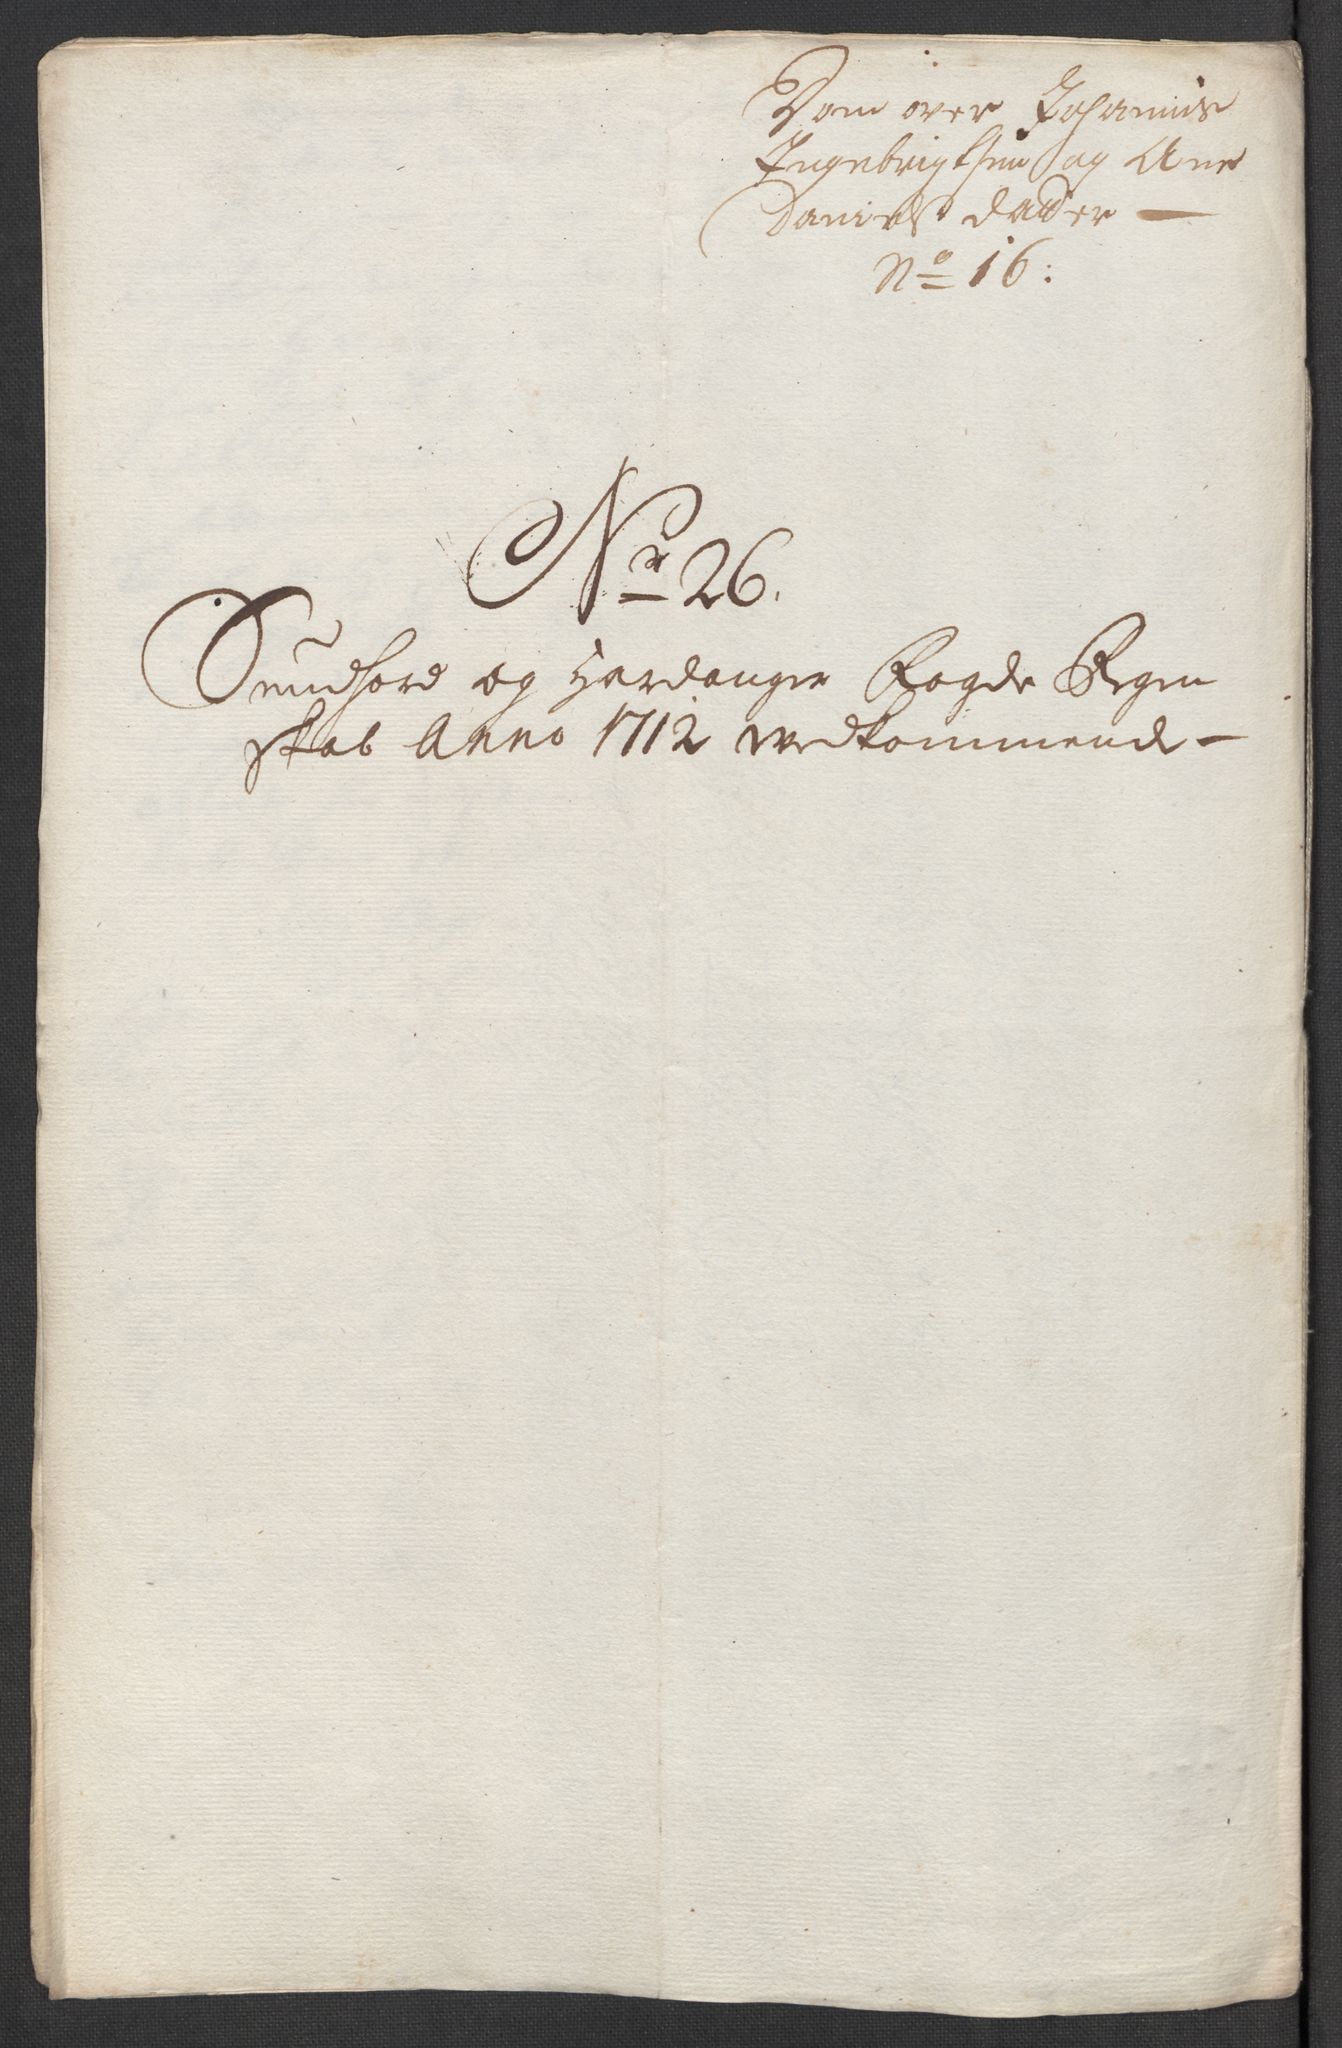 Dom over Johannis
Ingebrigtsen og Ane
Daniels datter —
No 16:
Nr 26.
Sundhord og Hardanger Fogde Regen
skab Anno 1712 vedkommende —